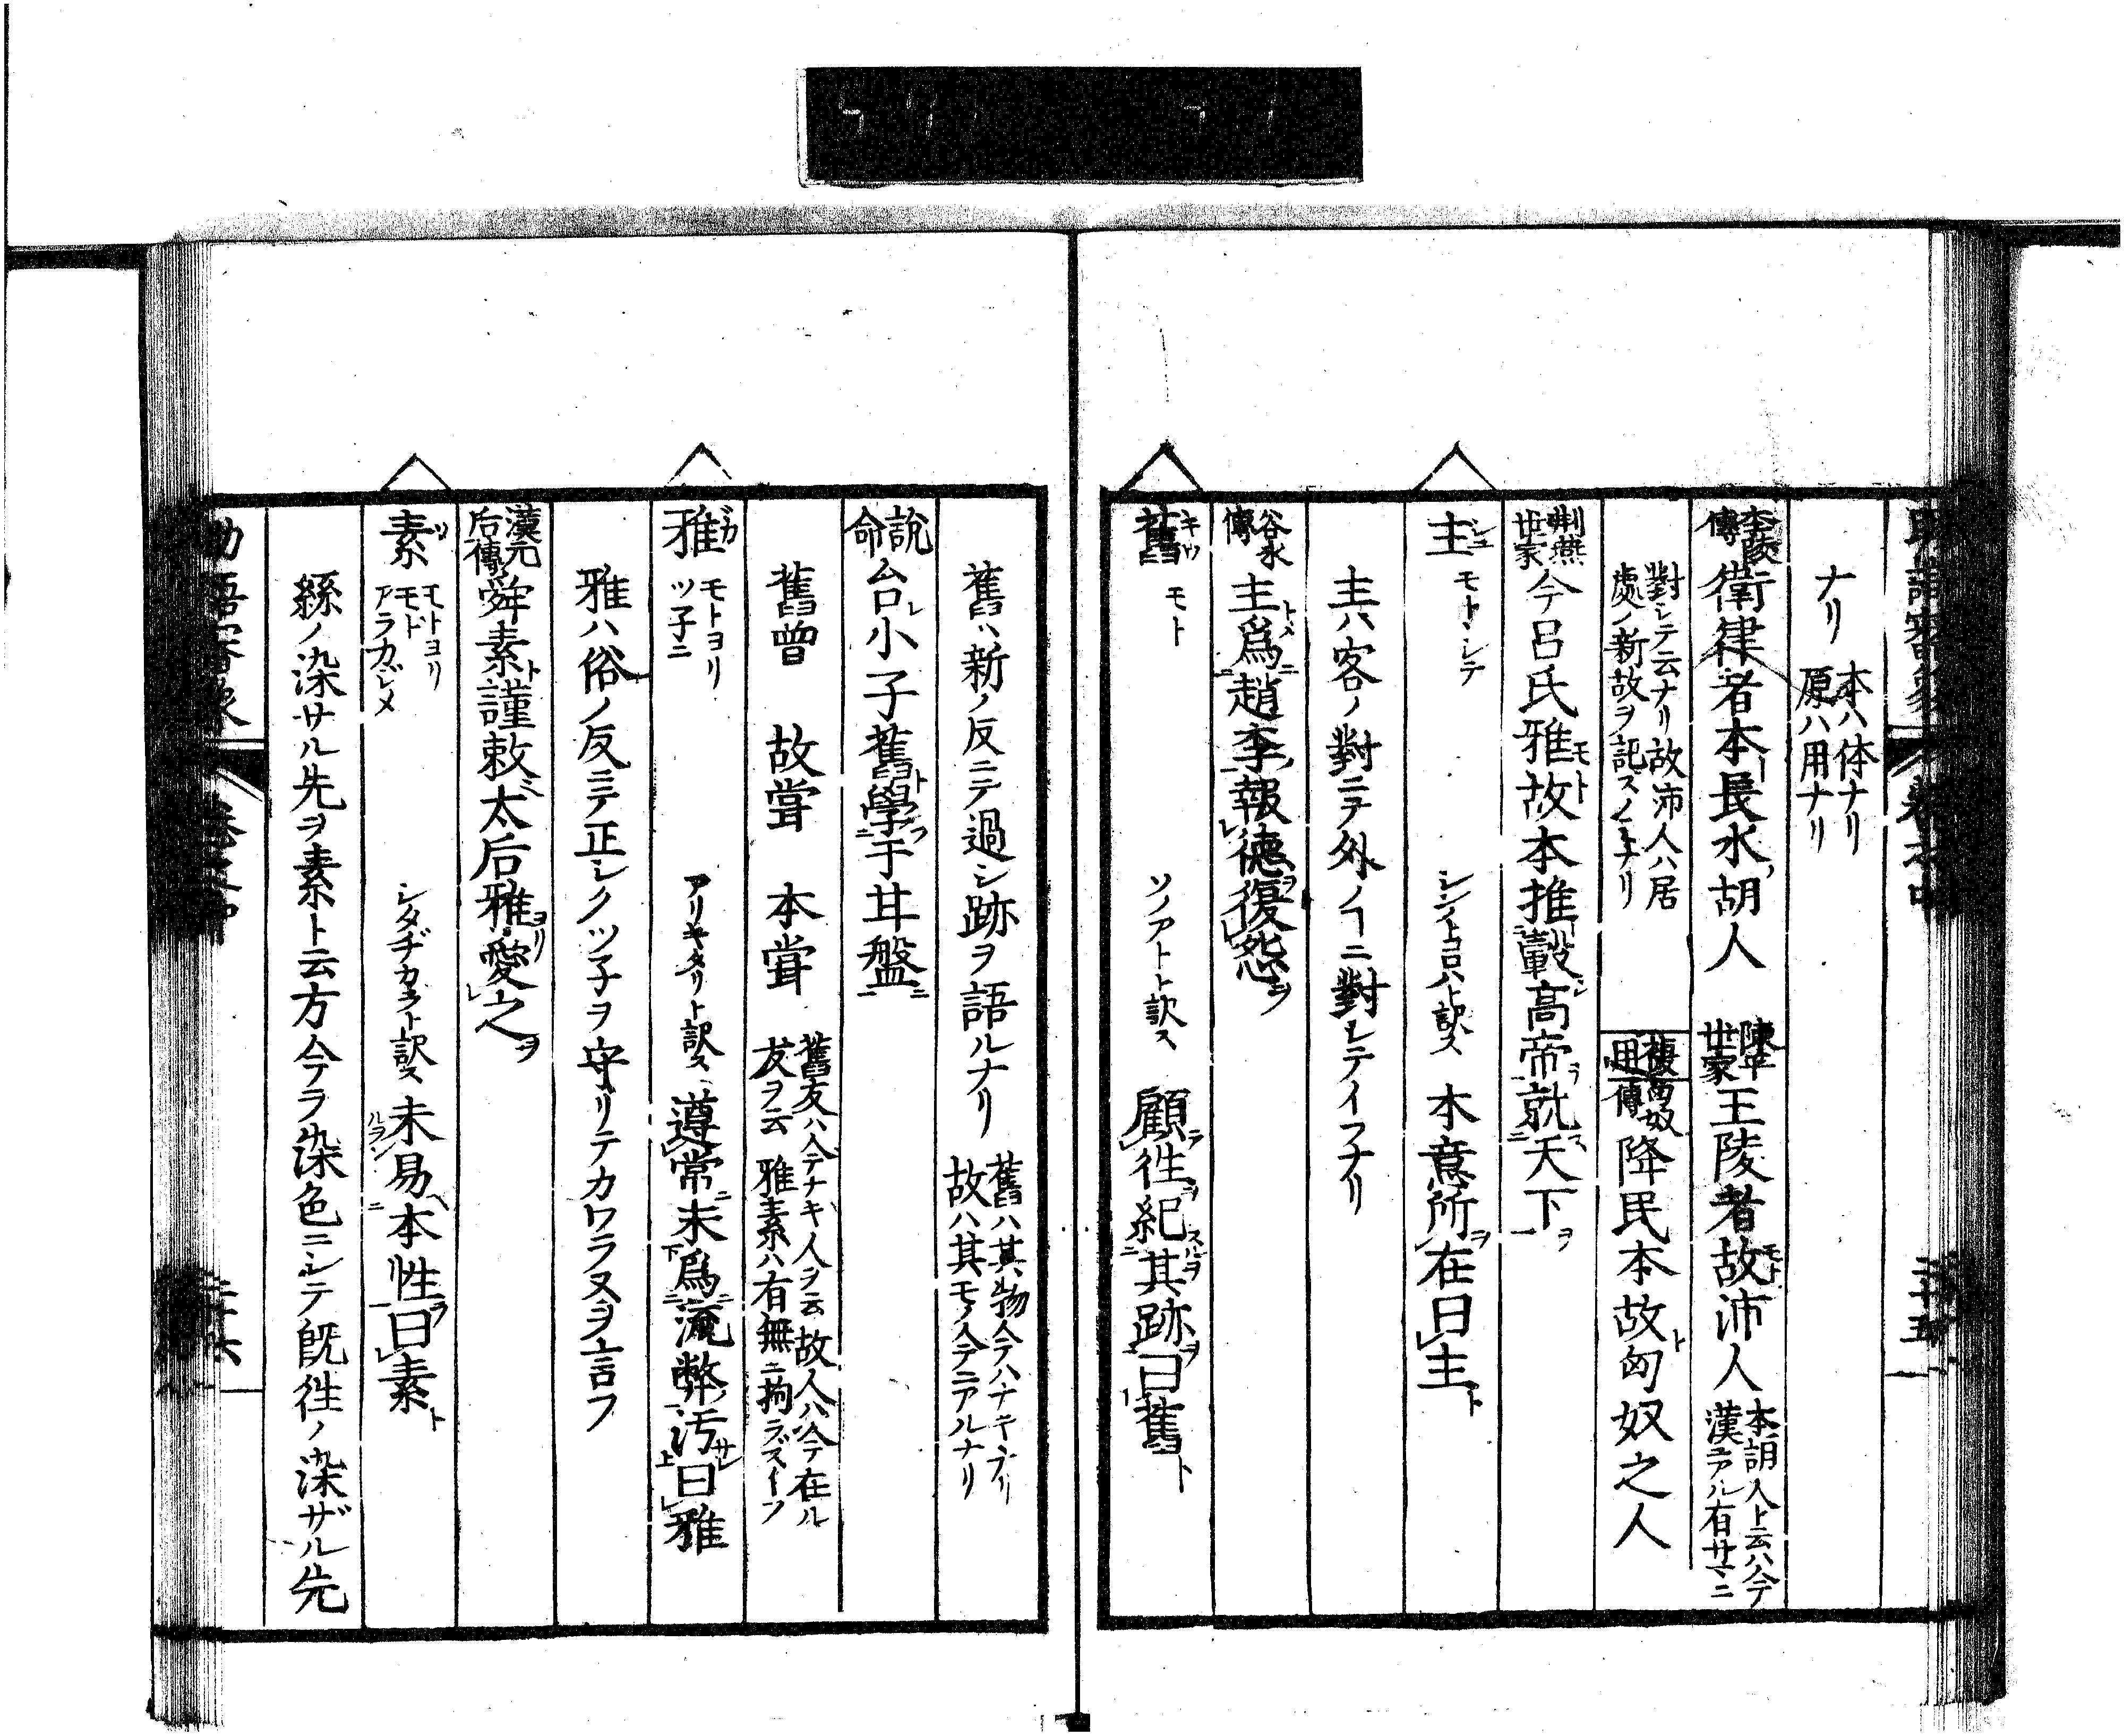 ナリ 本ハ体ナリ 原ハ用ナリ
李陵傳 衛律者本長水胡人 陳平世家 王陵者故沛人 本胡人ト云ハ今漢ニアル有サマニ
對シテ云ナリ故沛人ハ居處ノ新故ヲ記スノミナリ 匈奴傳 降民本故匈奴之人
荆燕世家 今呂氏雅故本推轂高帝就天下
主 シュ モトシテ 本意所在曰主
主ハ客ノ對ニテ外ノヿニ對シテイフナリ
谷永傳 主爲趙李報德復怨
舊 キウ モト ソノアトト訳ス 顧徃紀其跡曰舊
舊ハ新ノ反ニテ過シ跡ヲ語ルナリ 舊ハ其物今ハナキナリ 故ハ其モノ今ニアルナリ
說命 台小子舊學于甘盤
舊曾 故甞 本甞 舊友ハ今ナキ人ヲ云故人ハ今在ル友ヲ云 雅素ハ有無ニ拘ラズイフ
雅 ガ モトヨリ ツ子ニ アリキタリト訳ス 遵常未爲流弊汚曰雅
雅ハ俗ノ反ニテ正シクツ子ヲ守リテカワラヌヲ言フ
漢元后傳 舜素謹敕太后雅愛之
素 ソ モトヨリ モト アラカジメ シタヂカラト訳ス 未易本性曰素
絲ノ染サル先ヲ素ト云方今ラ染色ニシテ旣徃ノ染ザル先